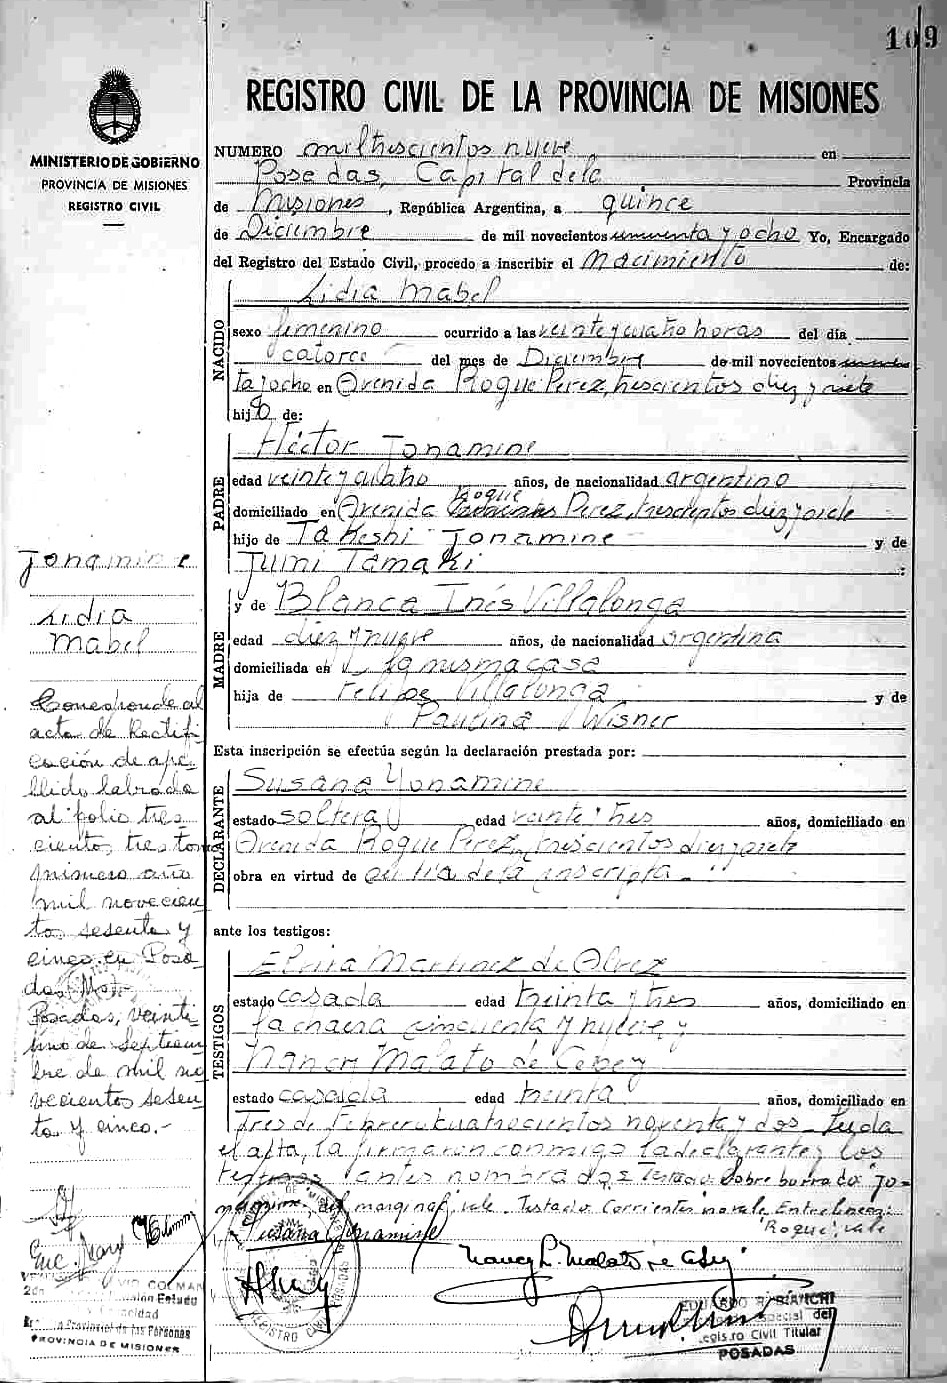 109
REGISTRO CIVIL DE LA PROVINCIA DE MISIONES
MINISTERIO DE GOBIERNO
PROVINCIA DE MISIONES
REGISTRO CIVIL
NUMERO mil trescientos nueve en
Posadas, Capital de la Provincia
de Misiones, República Argentina, a quince
de Diciembre de mil novecientos cincuenta y ocho Yo, Encargado
del Registro del Estado Civil, procedo a inscribir el Nacimiento de:
NACIDO
Lidia Mabel
sexo femenino ocurrido a las veinte y cuatro horas del día
catorce del mes de Diciembre de mil novecientos
ta y ocho en Avenida Roque Perez, trescientos diez y siete
hija de:
PADRE
Héctor Jonamine
edad veinte y cuatro años, de nacionalidad argentino
Roque
domiciliado en Avenida Corrientes Perez, trescientos diez y siete
hijo de Takeshi Jonamine y de
Jumi Tamaki
MADRE
y de Blanca Inés Villalonga
edad diez y nueve años, de nacionalidad argentina
domiciliada en la misma casa
hija de Felipe Villalonga y de
Paulina Wisner
Esta inscripción se efectúa según la declaración prestada por:
DECLARANTE
Susana Yonamine
estado soltera edad veinte y tres años, domiciliado en
Avenida Roque Perez, trescientos diez y siete
obra en virtud de ser tía de la inscripta
ante los testigos:
TESTIGOS
Elvira Martinez de Alvez
estado casada edad treinta y tres años, domiciliado en
la chacra cincuenta y nueve y
Nancy Malato de
estado casada edad treinta años, domiciliado en
Tres de Febrero cuatrocientos noventa y dos. Leida
el acta, la firmaron conmigo la declarante y los
testigos antes nombrados Testado Sobre borrado "Jo-
namine" del marginal, vale. Testado Corrientes no vale Entrelineas:
"Roque", vale
Jonamine
Lidia
Mabel
Corresponde al
acta de Rectifi
cación de ape-
llido labrada
al folio tres
cientos tres tomo
primero año
mil novecien
tos sesenta y
cinco en Posa-
das,
Posadas, veinti
uno de Septiem
bre de mil no
vecientos sesen
ta y cinco.-
Susana Yonamine
Nancy L. Malato de
REGISTRO CIVIL
EDUARDO R. BIANCHI
Registro Civil Titular
POSADAS
Provincial de las Personas
PROVINCIA DE MISIONES